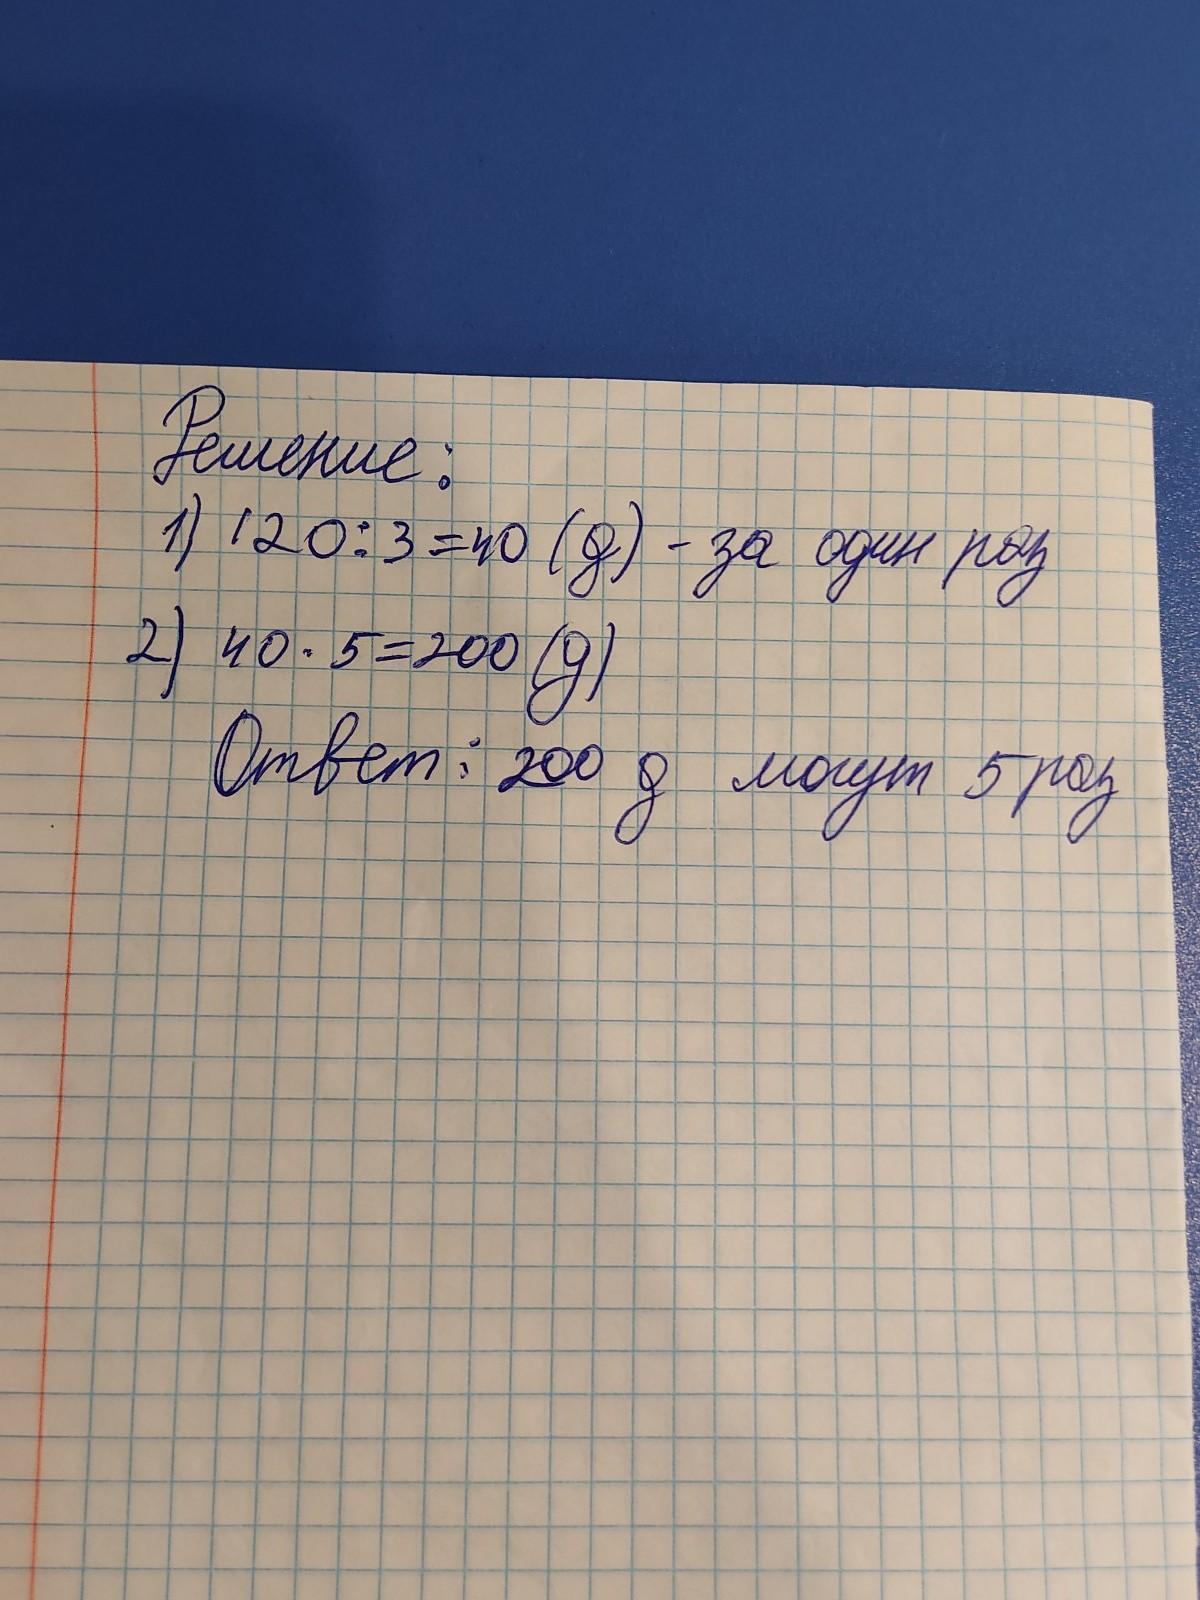 Решение:
1) 120:3=40 (д) - за один раз
2) 40·5=200 (д)
Ответ: 200 д могут 5 раз